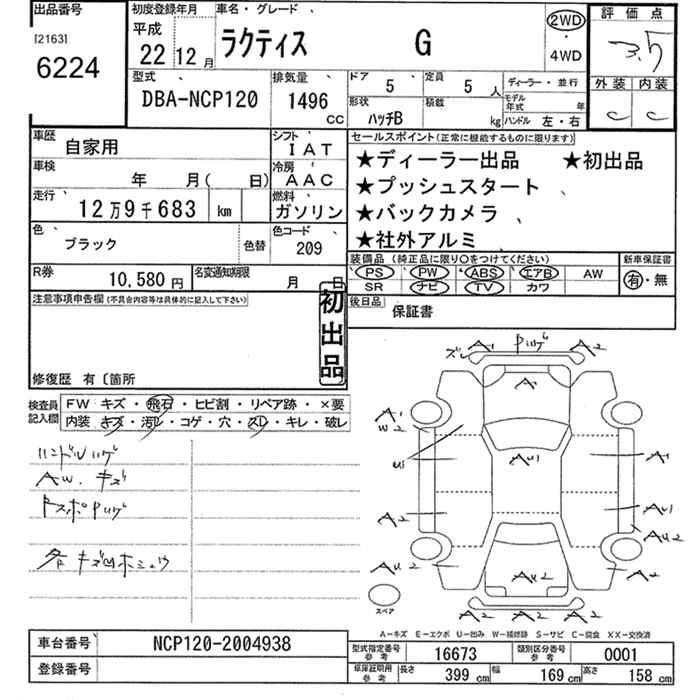 出品番号
[2163]
6224
初度登録年月
平成
22 12月
車名・グレード
ラクティス G
2WD
・
4WD
評価点
3.5
外装 内装
C C
型式
DBA-NCP120
排気量
1496
CC
ドア 5
定員 5人
形状 ハッチB
積載 kg
ディーラー・並行
モデル年式 年
ハンドル 左・右
車歴 自家用
シフト IAT
車検 年 月( 日)
冷房 AAC
走行 12万9千683 km
燃料 ガソリン
色 ブラック 色替
色コード 209
R券 10,580円
名変通知期限 月 日
セールスポイント(正常に機能するものに限ります)
★ディーラー出品 ★初出品
★プッシュスタート
★バックカメラ
★社外アルミ
装備品(純正品に限り○をつけてください)
新車保証書
PS PW ABS エアB AW
SR ナビ TV カワ
有・無
後日品 保証書
注意事項申告欄(不具合内容等は具体的に記入して下さい)
初出品
修復歴 有〔箇所
検査員記入欄
FW キズ・飛石・ヒビ割・リペア跡・×要
内装 キズ・汚レ・コゲ・穴・スレ・キレ・破レ
ハンドルハゲ
AW.キズ
各キズ凹
ズレ A1 A2
A1
A1
W2
U1
AU1
A1
A2
AU1
AU2
AU2
AU2
A2
A2 A2 A2
スペア
A-キズ E-エクボ U-凹み W-補修跡 S-サビ C-腐食 XX-交換済
車台番号 NCP120-2004938
登録番号
型式指定番号 参考 16673
類別区分番号 参考 0001
車庫証明用 参考 長さ 399 cm 幅 169 cm 高さ 158 cm